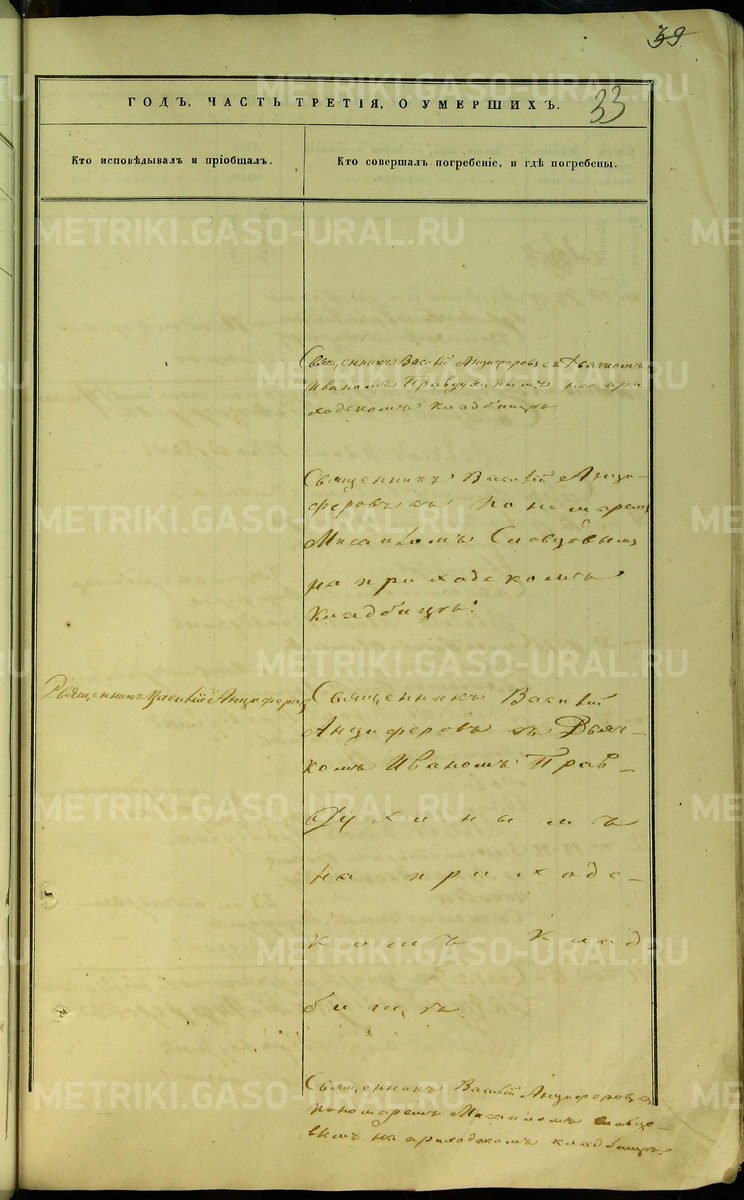 39
33
ГОДЪ, ЧАСТЬ ТРЕТІЯ, О УМЕРШИХЪ.
Кто исповѣдывалъ и пріобщалъ.
Кто совершалъ погребеніе, и гдѣ погребены.
Священникъ Василій Анциферовъ съ Дьячкомъ
Иваномъ Правдухинымъ на при
ходскомъ кладбищѣ.
Священникъ Василій Анци-
феровъ съ Пономаремъ
Мисаиломъ Словцовымъ
на приходскомъ
кладбищѣ.
Священникъ Василій Анциферовъ
Священникъ Василій
Анциферовъ съ Дьяч-
комъ Иваномъ Прав-
духинымъ
на приходс-
комъ клад
бищѣ
Священникъ Василій Анциферовъ съ
пономаремъ Мисаиломъ Словцо-
вымъ на приходскомъ кладбищѣ.
METRIKI.GASO-URAL.RU